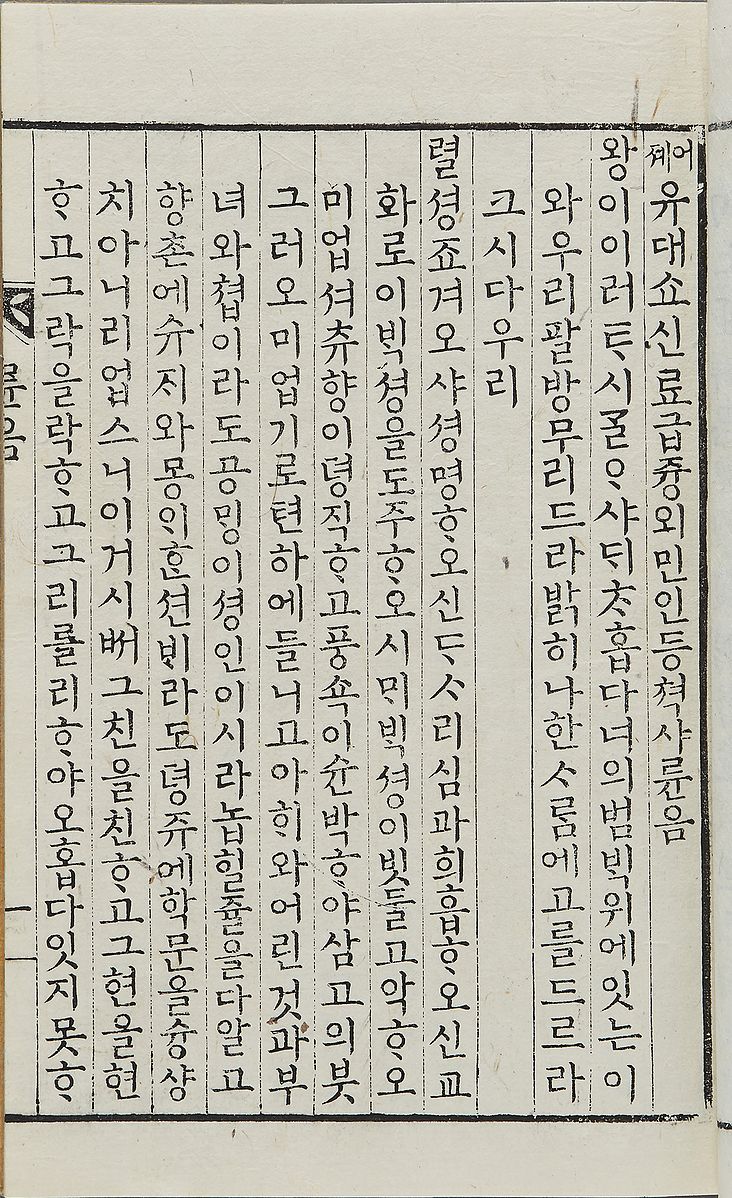 어졔유대쇼신료급즁외민인등쳑샤륜음
왕이이러ᄐᆞ시ᄀᆞᆯᄋᆞ샤ᄃᆡᄎᆞ홉다녀의범ᄇᆡᆨ위에잇는이
와우리팔방무리드라밝히나한ᄉᆞᄅᆞᆷ에고를드르라
크시다우리
렬셩죠겨오샤셩명ᄒᆞ오신ᄃᆞᄉᆞ리심과희흡ᄒᆞ오신교
화로이ᄇᆡᆨ셩을도주ᄒᆞ오시ᄆᆡᄇᆡᆨ셩이빗들고악ᄒᆞ오
미업셔츄향이뎡직ᄒᆞ고풍쇽이슌박ᄒᆞ야삼고의븟
그러오미업기로텬하에들니고아ᄒᆡ와어린것과부
녀와쳡이라도공ᄆᆡᆼ이셩인이시라놉힐쥴을다알고
향촌에슈ᄌᆡ와몽ᄋᆡᄒᆞᆫ션ᄇᆡ라도뎡쥬에학문을슝샹
치아니리업스니이거시ᄡᅥ그친을친ᄒᆞ고그현을현
ᄒᆞ고그락을락ᄒᆞ고그리ᄅᆞᆯ리ᄒᆞ야오홉다잇지못ᄒᆞ
륜음
一